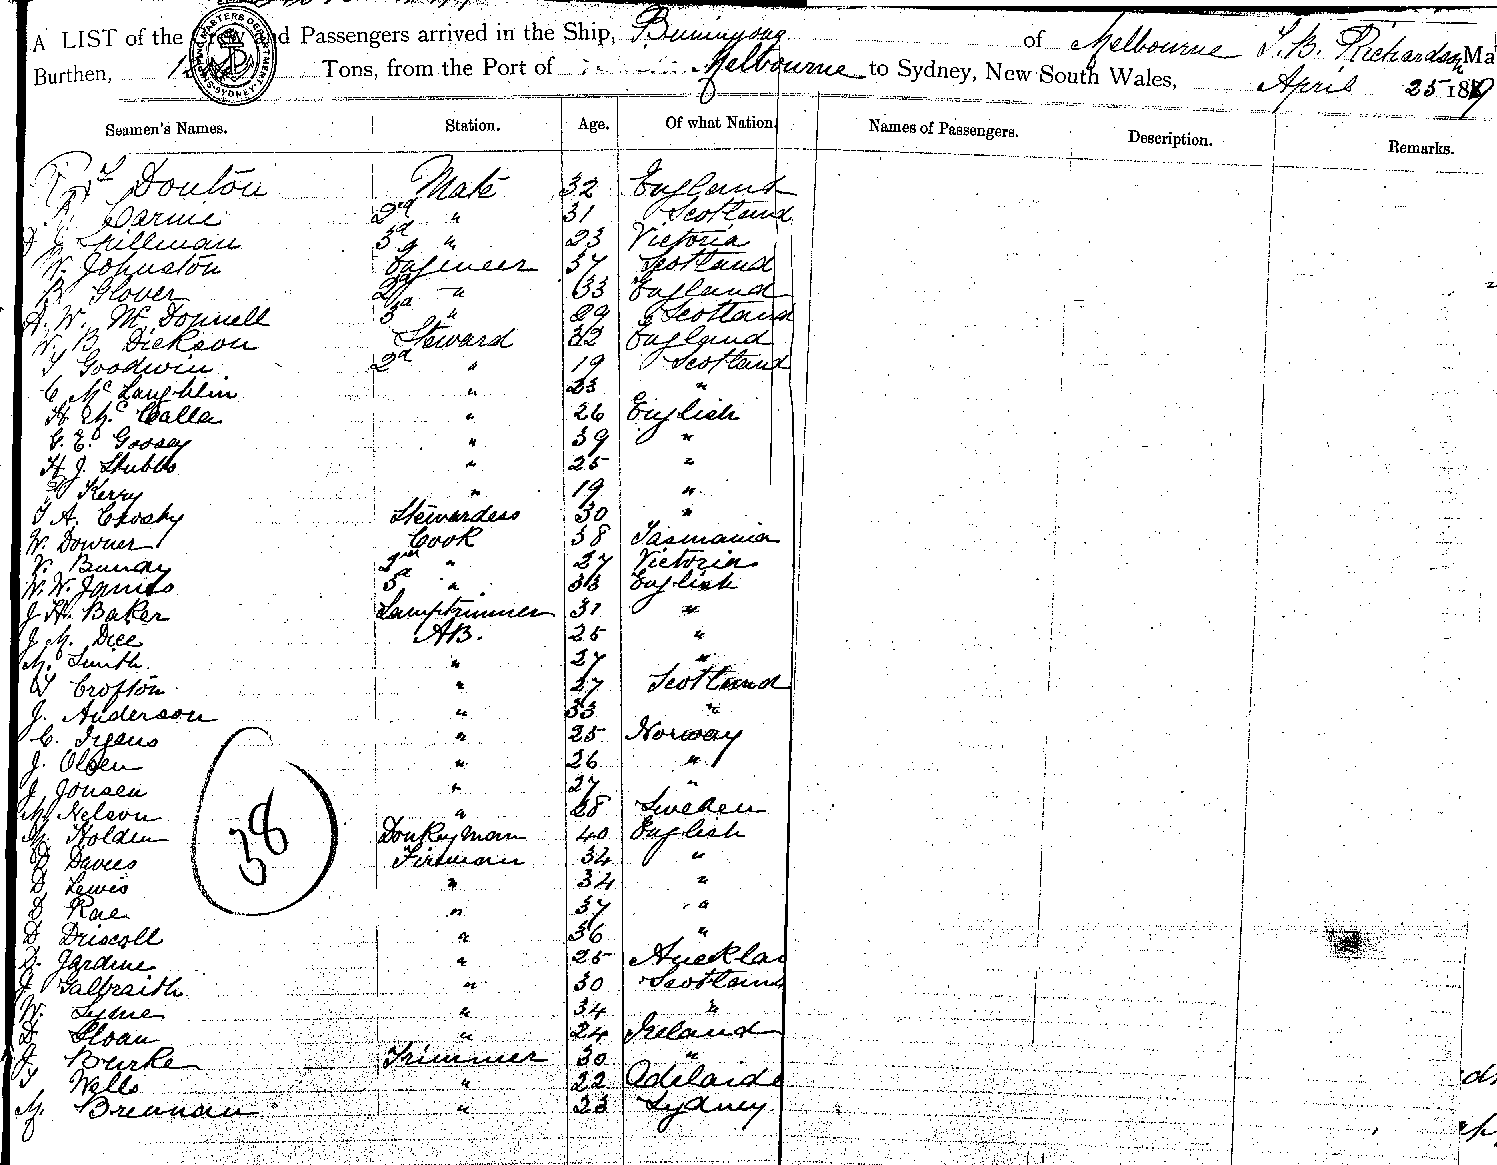 A LIST of the Crew and Passengers arrived in the Ship, Buninyong of Melbourne T. B. Richardson Ma
Burthen, Tons, from the Port of Melbourne to Sydney, New South Wales, April 25 189
Seamen's Names. Station. Age. Of what Nation Names of Passengers. Description. Remarks.
Douton Mate 32 England
Carnie 2d " 31 Scotland
Hillman 3d " 23 Victoria
W. Johnston Engineer 37 Scotland
Glover 2d " 33 England
A. W. McDonnell 3d " 29 Scotland
W. B. Dickson Steward 32 England
T Goodwin 2d " 19 Scotland
C McLaughlin " 23 "
H. Mc Calla " 26 English
G. E. " 39 "
H. J. Stubbs " 25 "
Kerry " 19 "
T A. Crosby Stewardess 30 "
W. Downer Cook 38 Tasmania
V. Bundy " 27 Victoria
W. W. " 33 English
J H. Baker Lamptrimmer 31 "
J. M. Dice AB. 25 "
M. Smith " 27 "
T Crofton " 27 Scotland
J. Anderson " 33 "
C. " 25 Norway
J. Olsen " 26 "
J Jonsen " 27 "
M. Nelson " 28 Sweden
M. Holden Donkeyman 40 English
D Davies Fireman 34 "
D Lewis " 34 "
D Rae " 37 "
D Driscoll " 36 "
Jardine " 25 Aucklan
J Galbraith " 30 Scotland
W. Lyme " 34 "
Sloan " 24 Ireland
J Bourke Trimmer 30 "
T Wells " 22 Adelaide
M. Brennan " 23 Sydney
38